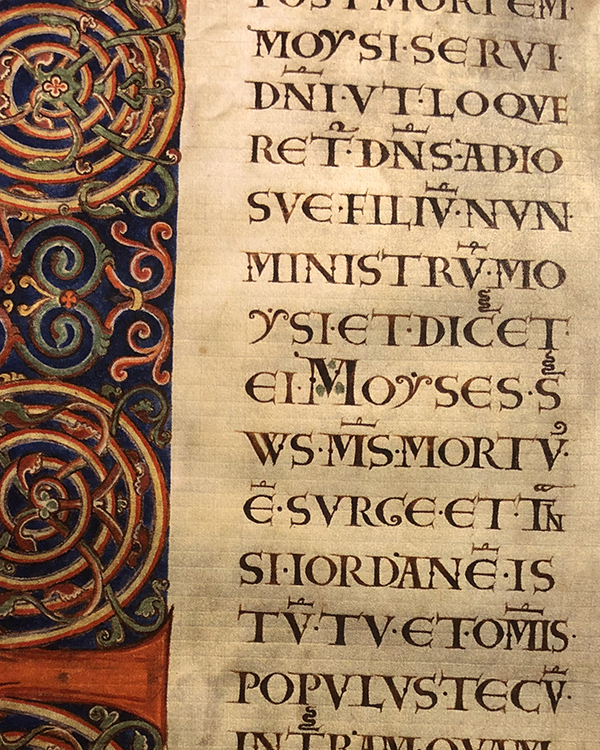 POST MORTEM·
MOYSI·SERVI·
DN̄I·VT·LOQVE
RET̄·DN̄S·ADIO
SVE·FILIV̄·NVN·
MINISTRV̄·MO
YSI·ET·DICET·
EI·MOYSES·S̄
WS·M̄S·MORTV᾿·
Ē·SVRGE·ET·TN̄
SI·IORDANĒ·IS
TV̄·TV·ET·OM̄IS·
POPVLVS·TECV̄·
IN TRAM QVAM